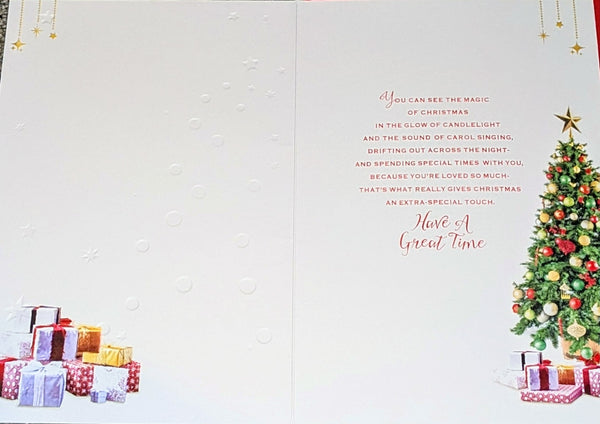 YOU CAN SEE THE MAGIC
OF CHRISTMAS
IN THE GLOW OF CANDLELIGHT
AND THE SOUND OF CAROL SINGING,
DRIFTING OUT ACROSS THE NIGHT-
AND SPENDING SPECIAL TIMES WITH YOU,
BECAUSE YOU'RE LOVED SO MUCH-
THAT'S WHAT REALLY GIVES CHRISTMAS
AN EXTRA-SPECIAL TOUCH.
Have A
Great Time